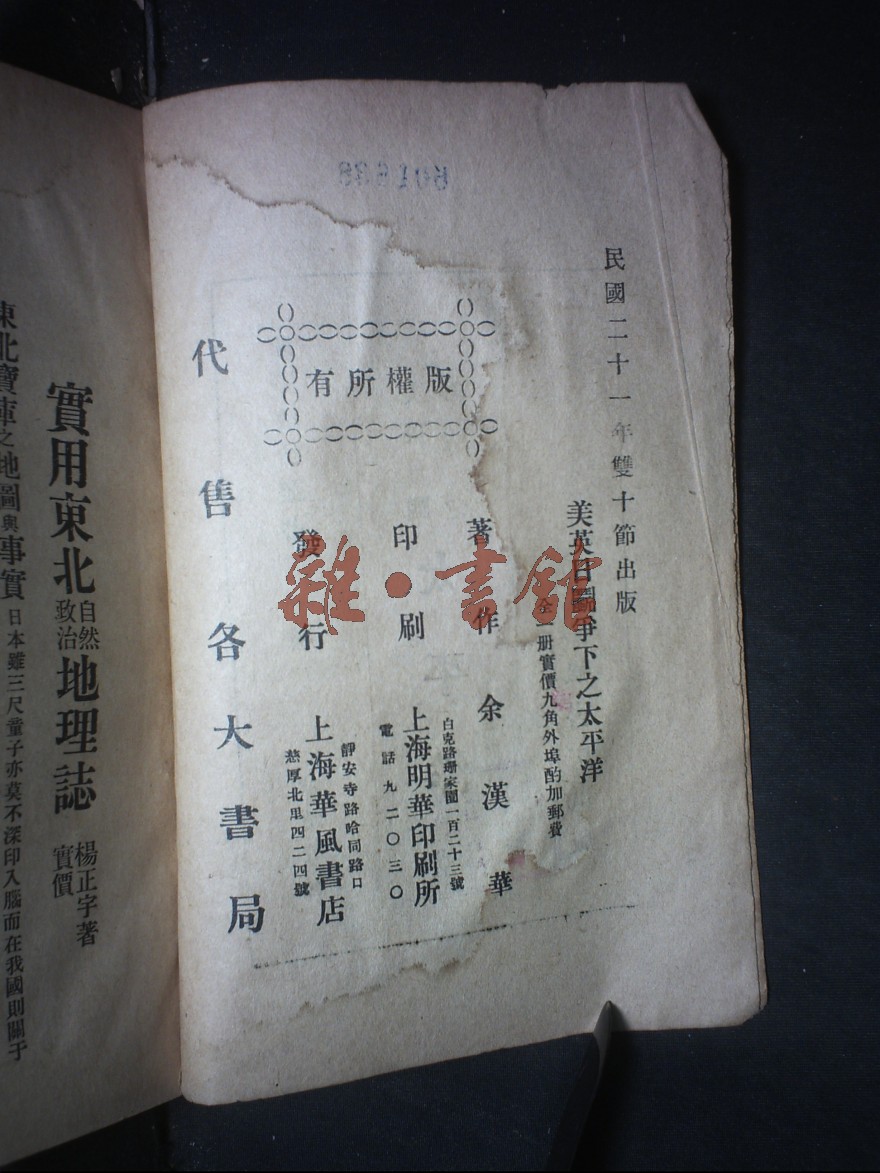 民國二十一年雙十節出版
美英日鬭爭下之太平洋
全一册實價九角外埠酌加郵費
版權所有
著作 余漢華
印刷 上海明華印刷所
白克路珊家園一百二十三號
電話九二〇三〇
發行 上海華風書店
靜安寺路哈同路口
慈厚北里四二四號
代售各大書局
實用東北自然政治地理誌 楊正宇著
實價
東北寶庫之地圖與事實 日本雖三尺童子亦莫不深印入腦而在我國則關于
雜·書館